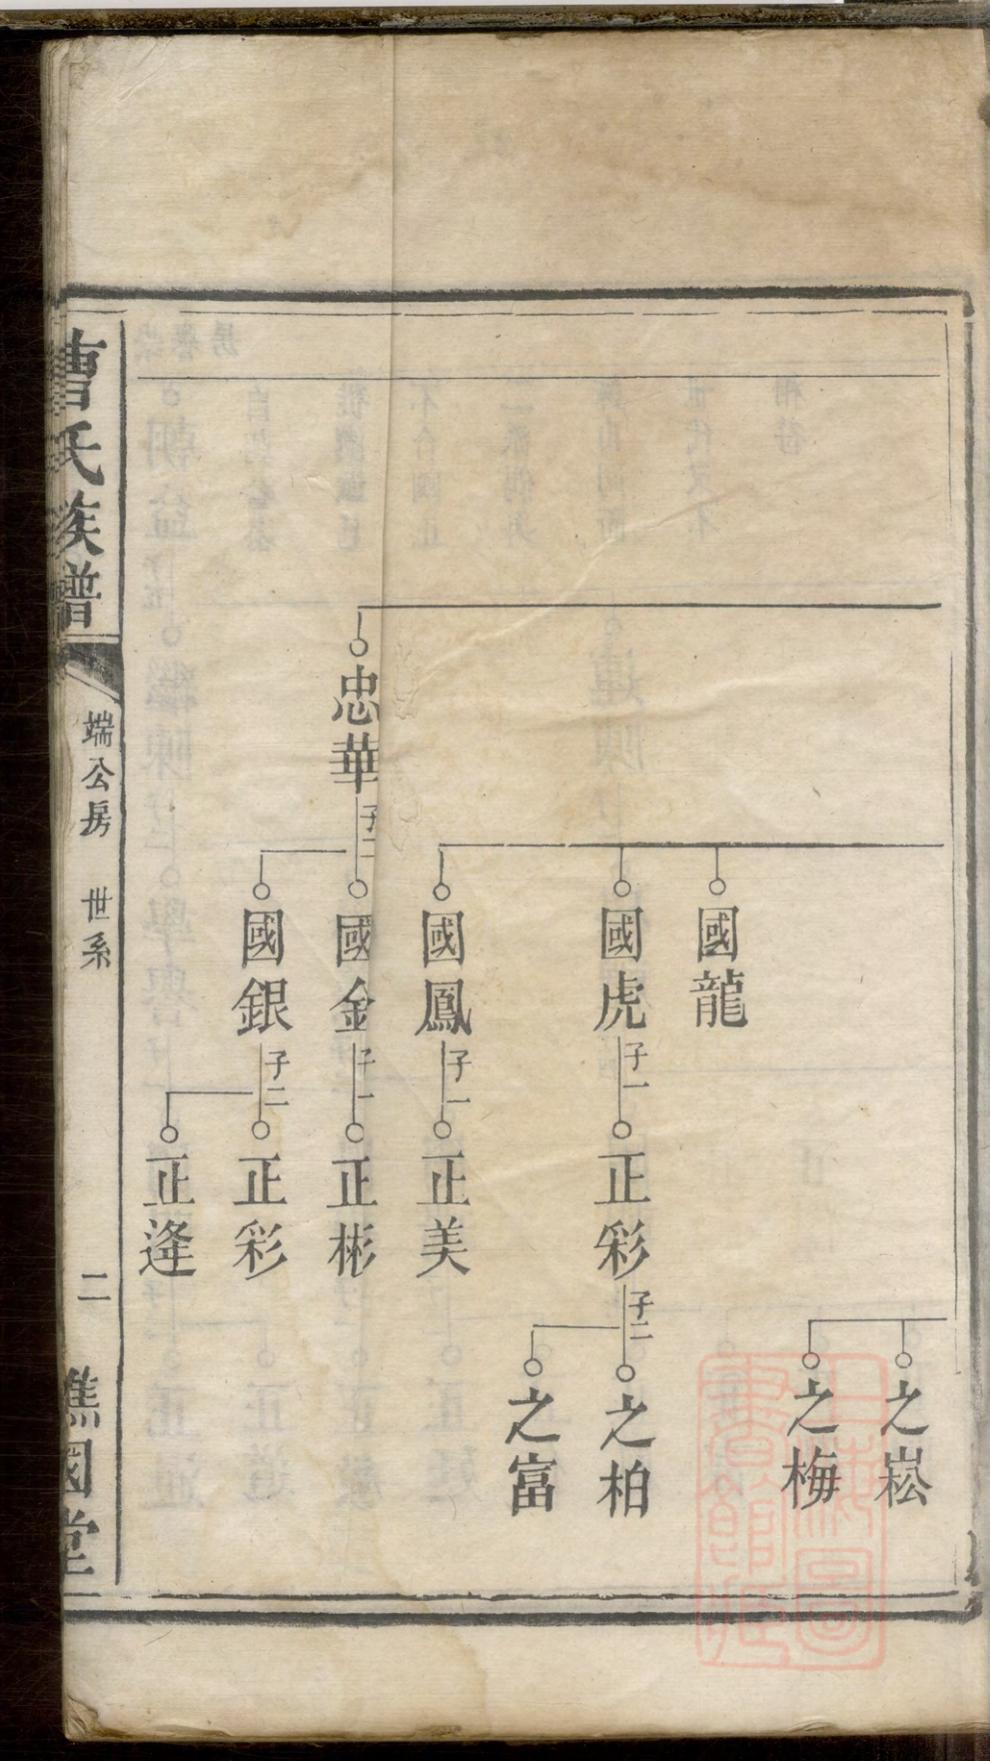 之崧
之梅
國龍
國虎
子一
正彩
子二
之柏
之富
國鳳
子一
正美
忠華
子二
國金
子一
正彬
國銀
子二
正彩
正逢
曹氏族譜
端公房 世系
二
譙國堂
上海圖書館藏